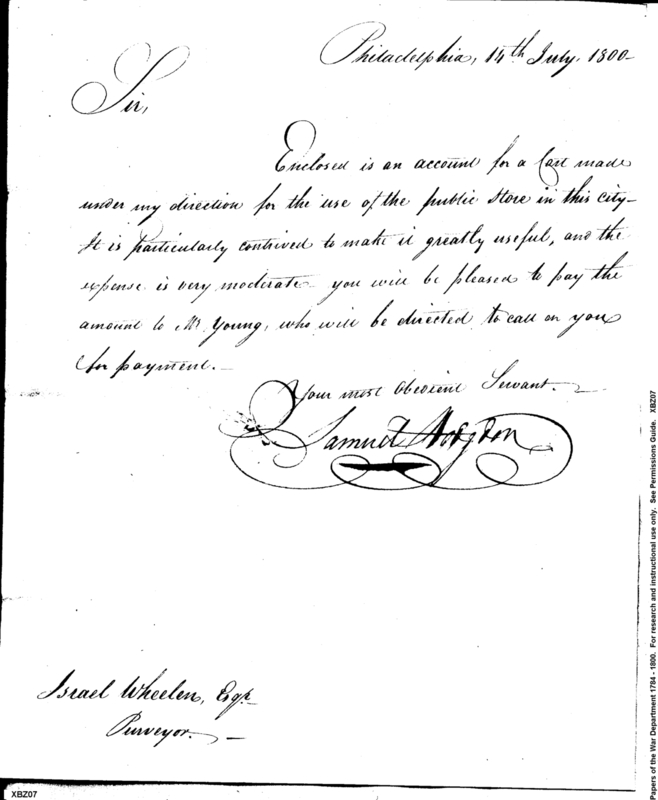 Philadelphia, 14th July. 1800-
Sir,
Enclosed is an account for a Cart made
under my direction for the use of the public Store in this city-
It is particularly contrived to make it greatly useful, and the
expense is very moderate- you will be pleased to pay the
amount to Mr Young, who will be directed to call on you
for payment.-
Your most Obedient Servant.-
Samuel Hodgdon
Israel Wheelen, Esqr.
Purveyor.-
XBZ07
Papers of the War Department 1784 - 1800. For research and instructional use only. See Permissions Guide. XBZ07